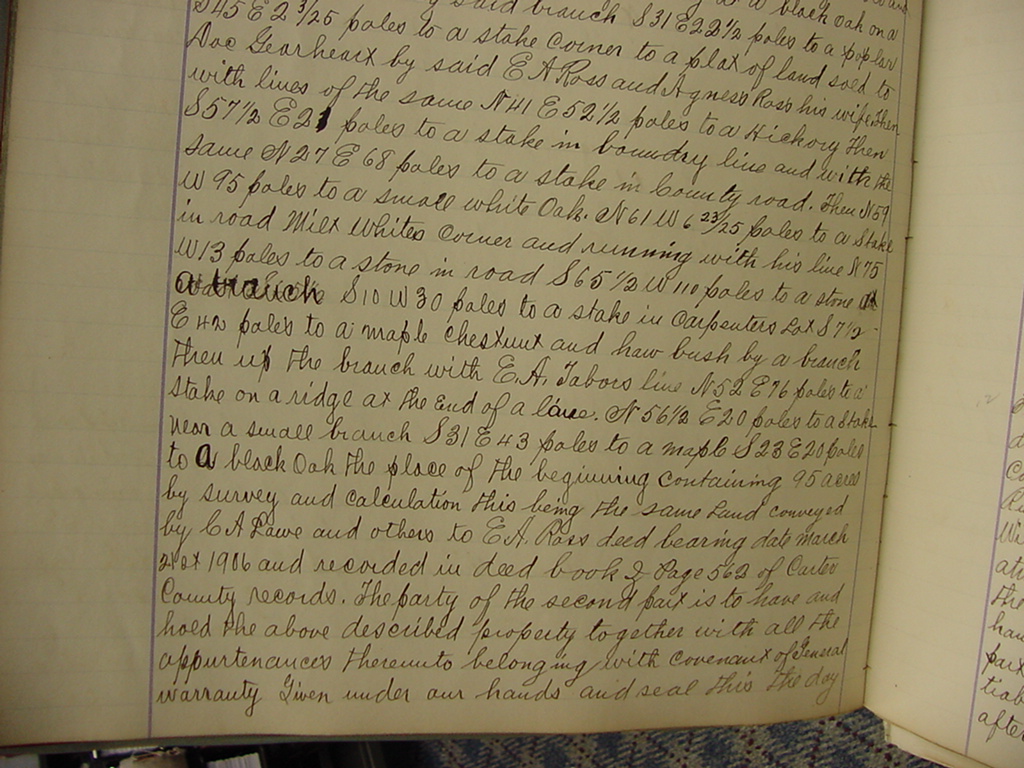 said branch S31 E22 1/2 poles to a poplar
S45 E 2 3/25 poles to a stake Corner to a plat of land sold to
Doc Gearheart by said E A Ross and Agness Ross his wife then
with lines of the same N41 E 52 1/2 poles to a Hickory then
S57 1/2 E21 poles to a stake in boundry line and with the
same N27 E 68 poles to a stake in County road. Then N59
W 95 poles to a small white Oak. N61 W 6 23/25 poles to a stake
in road Milt Whites Corner and running with his line N75
W13 poles to a stone in road S65 1/2 W 110 poles to a stone
a branch S10 W30 poles to a stake in Carpenters Lot S7 1/2
E 42 poles to a maple chestnut and haw bush by a branch
Then up the branch with E.A. Tabors line N52 E76 poles to a
stake on a ridge at the End of a line. N56 1/2 E20 poles to a stake
near a small branch S31 E 43 poles to a maple S23 E20 poles
to a black Oak the place of the beginning containing 95 acres
by survey and calculation this being the same Land conveyed
by C A Lawe and others to E.A. Ross deed bearing date march
21st 1906 and recorded in deed book 2 Page 562 of Carter
County records. The party of the second part is to have and
hold the above described property together with all the
appurtenances thereunto belonging with covenant of General
warranty Given under our hands and seal this the day